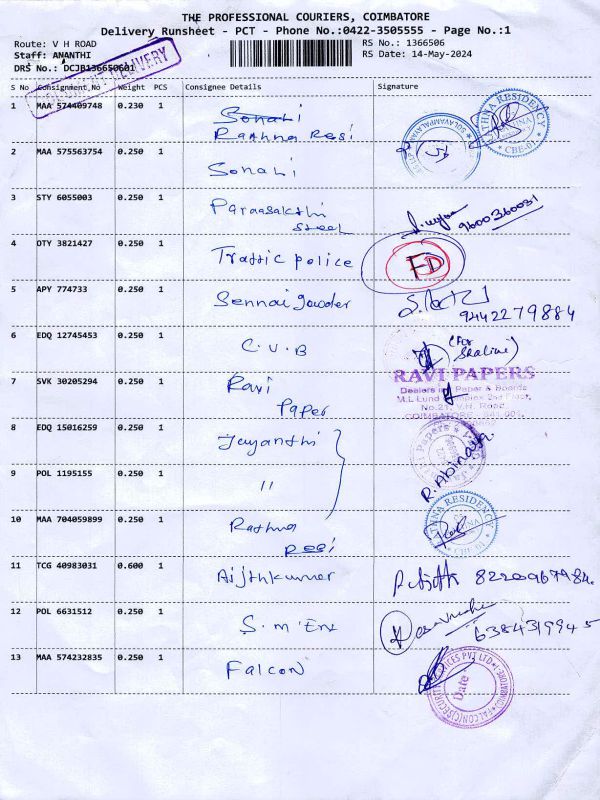 THE PROFESSIONAL COURIERS, COIMBATORE
Delivery Runsheet - PCT - Phone No.:0422-3505555 - Page No.:1
Route: V H ROAD
RS No.: 1366506
Staff: ANANTHI
RS Date: 14-May-2024
DRS No.: DCJB136650601
DELIVERY
S No Consignment No Weight PCS Consignee Details Signature
1 MAA 574409748 0.230 1 Sonali
Rathna Resi
RATHNA RESIDENCY
CBE-01
2 MAA 575563754 0.250 1 Sonali
3 STY 6055003 0.250 1 Paraasakthi
Steel
9600360031
4 OTY 3821427 0.250 1 Traffic police FD
5 APY 774733 0.250 1 Sennai gowder
9442279884
6 EDQ 12745453 0.250 1 C.U.B (For
Shalini)
7 SVK 30205294 0.250 1 Ravi
Paper
RAVI PAPERS
Dealers in Paper & Boards
M.L Lund Complex 2nd Floor,
No.21, V.H. Road,
COIMBATORE - 641 001.
8 EDQ 15016259 0.250 1 Jeyanthi
R. Abinaya
9 POL 1195155 0.250 1 "
10 MAA 704059899 0.250 1 Rathna
Resi
RATHNA RESIDENCY
CBE-01
11 TCG 40983031 0.600 1 Aijthkumar 8220967984.
12 POL 6631512 0.250 1 S.M. Ent 6384319945
13 MAA 574232835 0.250 1 Falcon
Date